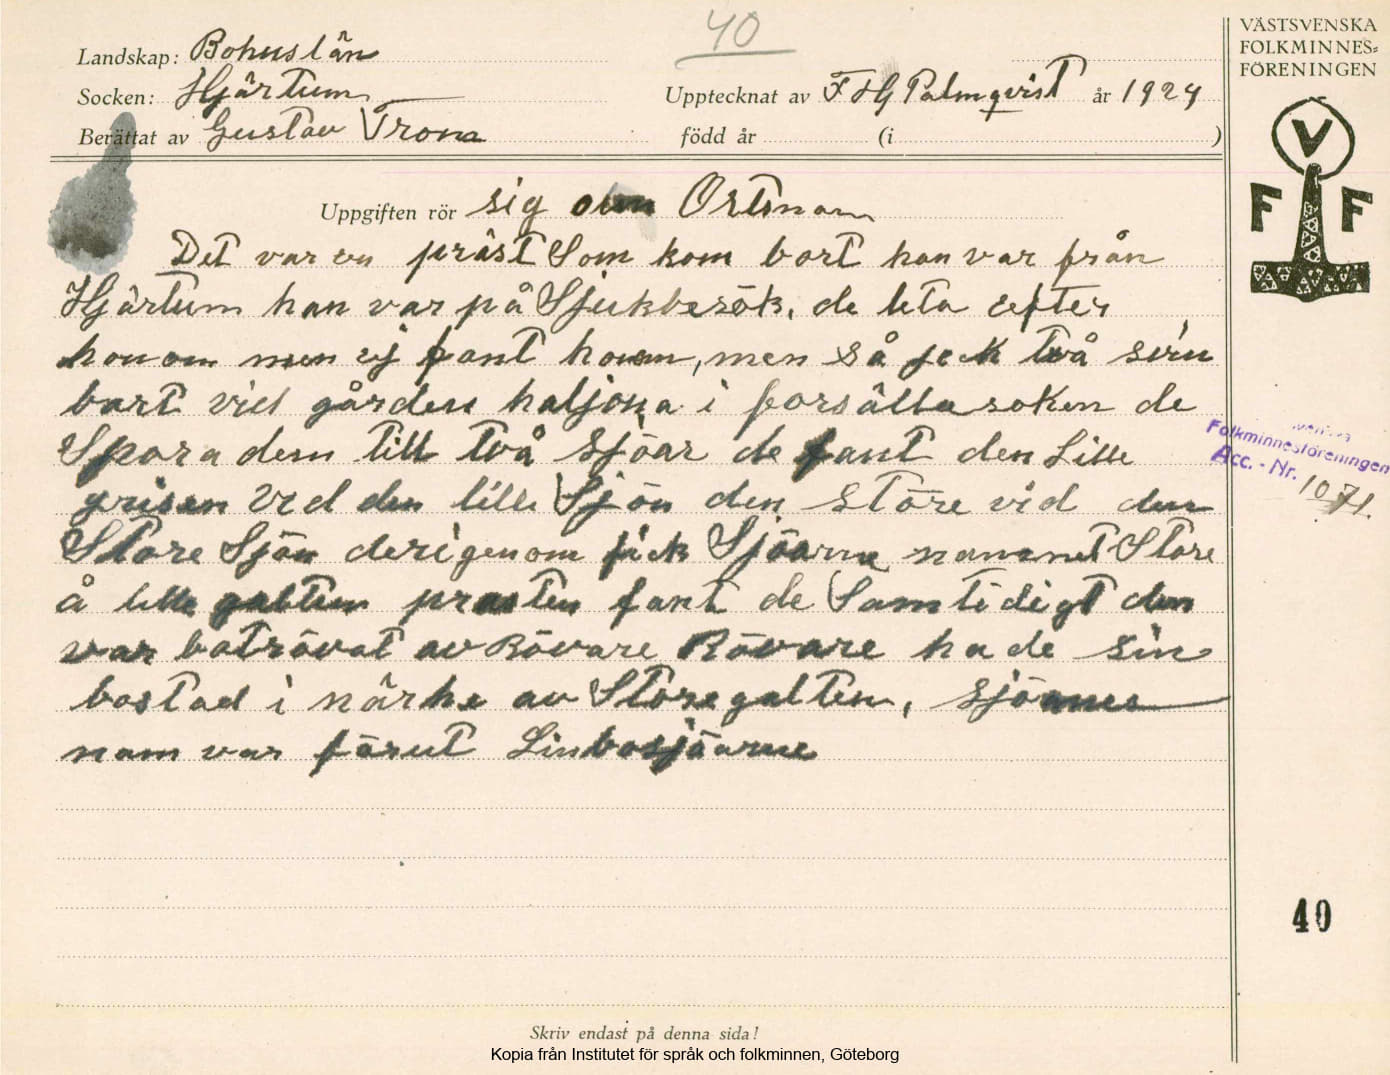 40
Landskap: Bohuslän
Socken: Hjärtum
Upptecknat av F HG Palmqvist år 1924
Berättat av Gustav Trona
född år (i )
VÄSTSVENSKA
FOLKMINNES=
FÖRENINGEN
V
F F
Uppgiften rör sig om Ortsnam
Det var en präst Som kom bort han var från
Hjärtum han var på Sjukbesök, de leta eefter
honom men ej fant honom, men så jeck två svin
bort vid gården haljona i forsälla soken de
Spora dem till två sjöar de fant den Lille
grisen vid den lille Sjön den störe vid den
Store Sjön derigenom fick Sjöarne namnet Store
å lille galten prästen fant de Samtidigt den
var boträvat av Rövare Rövare hade sin
bostad i närhe av Store galten, sjöanes
nam var förut Linbosjöarne
Folkminnesföreningen
Acc. - Nr. 1071.
40
Skriv endast på denna sida!
Kopia från Institutet för språk och folkminnen, Göteborg